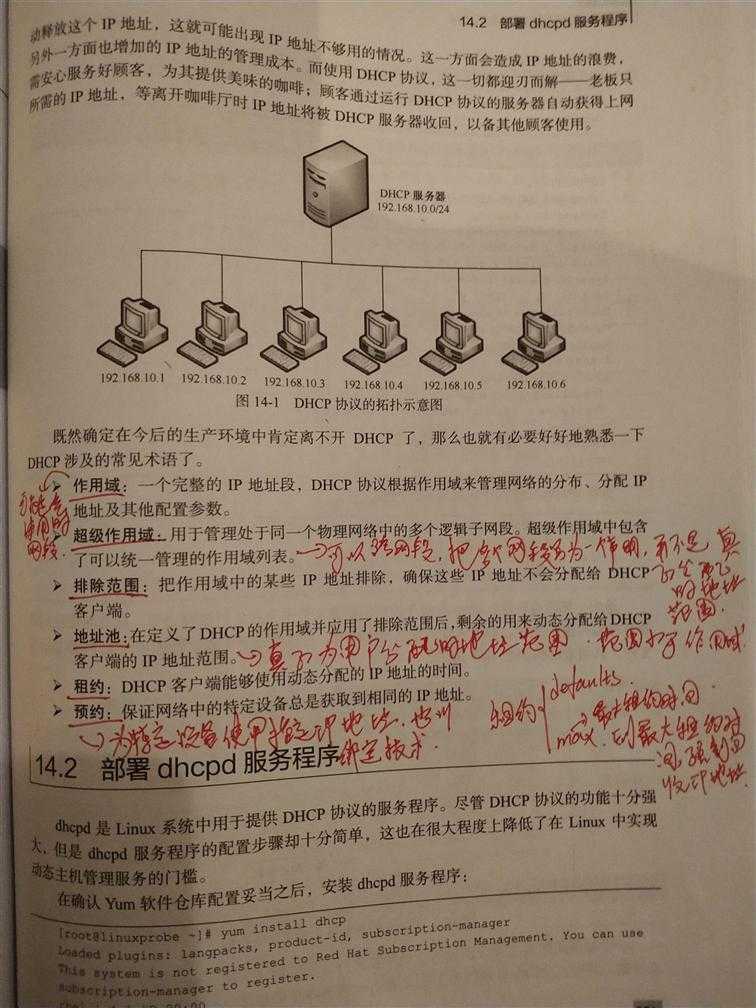 14.2 部署 dhcpd 服务程序
动释放这个 IP 地址，这就可能出现 IP 地址不够用的情况。这一方面会造成 IP 地址的浪费，
另外一方面也增加的 IP 地址的管理成本。而使用 DHCP 协议，这一切都迎刃而解——老板只
需安心服务好顾客，为其提供美味的咖啡；顾客通过运行 DHCP 协议的服务器自动获得上网
所需的 IP 地址，等离开咖啡厅时 IP 地址将被 DHCP 服务器收回，以备其他顾客使用。
DHCP 服务器
192.168.10.0/24
192.168.10.1 192.168.10.2 192.168.10.3 192.168.10.4 192.168.10.5 192.168.10.6
图 14-1 DHCP 协议的拓扑示意图
既然确定在今后的生产环境中肯定离不开 DHCP 了，那么也就有必要好好地熟悉一下
DHCP 涉及的常见术语了。
➢ 作用域：一个完整的 IP 地址段，DHCP 协议根据作用域来管理网络的分布、分配 IP
地址及其他配置参数。
使用的
网段.
超级作用域：用于管理处于同一个物理网络中的多个逻辑子网段。超级作用域中包含
了可以统一管理的作用域列表。
可以跨网段, 把多个网段
而不是真
的地址
范围.
➢ 排除范围：把作用域中的某些 IP 地址排除，确保这些 IP 地址不会分配给 DHCP
客户端。
➢ 地址池：在定义了 DHCP 的作用域并应用了排除范围后，剩余的用来动态分配给 DHCP
客户端的 IP 地址范围。
真正为用户分配的地址范围. 范围小于作用域.
➢ 租约：DHCP 客户端能够使用动态分配的 IP 地址的时间。
➢ 预约：保证网络中的特定设备总是获取到相同的 IP 地址。
为特定设备使用指定IP地址.
绑定技术.
租约
default
最大租约时间
max. 到最大租约时
间强制回
收IP地址
14.2 部署 dhcpd 服务程序
dhcpd 是 Linux 系统中用于提供 DHCP 协议的服务程序。尽管 DHCP 协议的功能十分强
大，但是 dhcpd 服务程序的配置步骤却十分简单，这也在很大程度上降低了在 Linux 中实现
动态主机管理服务的门槛。
在确认 Yum 软件仓库配置妥当之后，安装 dhcpd 服务程序：
[root@linuxprobe ~]# yum install dhcp
Loaded plugins: langpacks, product-id, subscription-manager
This system is not registered to Red Hat Subscription Management. You can use
subscription-manager to register.